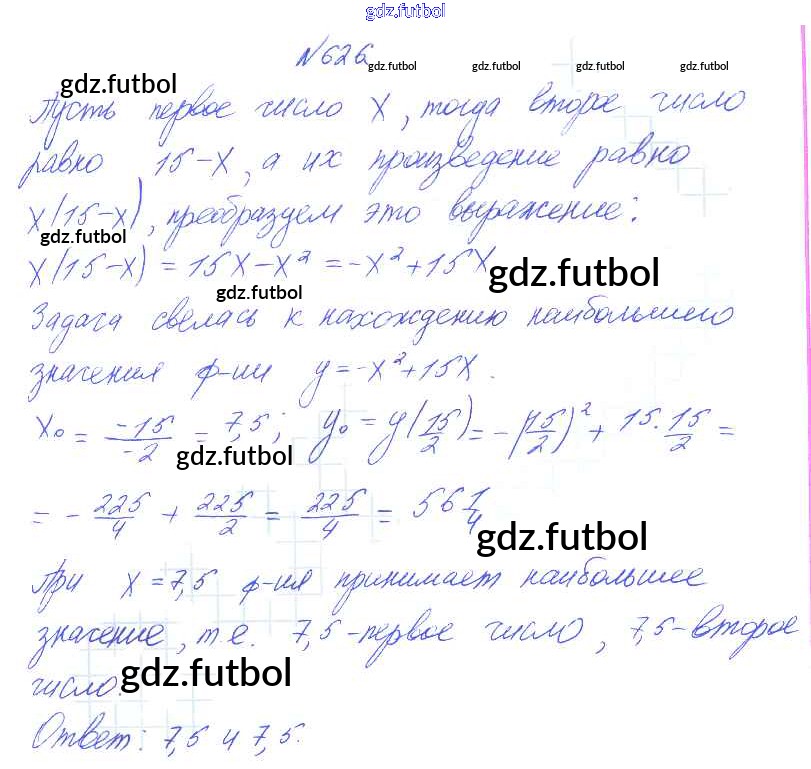 gdz.futbol
№626
gdz.futbol gdz.futbol gdz.futbol gdz.futbol gdz.futbol
Пусть первое число x, тогда второе число
равно 15-x, а их произведение равно
x(15-x), преобразуем это выражение:
gdz.futbol
x(15-x) = 15x-x² = -x²+15x
gdz.futbol
gdz.futbol
Задача свелась к нахождению наибольшего
значения ф-ии y=-x²+15x.
x₀ = -15/-2 = 7,5; y₀ = y(15/2) = -(15/2)² + 15·15/2 =
gdz.futbol
= - 225/4 + 225/2 = 225/4 = 56 1/4
gdz.futbol
При x=7,5 ф-ия принимает наибольшее
значение, т.е. 7,5-первое число, 7,5-второе
число.
gdz.futbol
Ответ: 7,5 и 7,5.